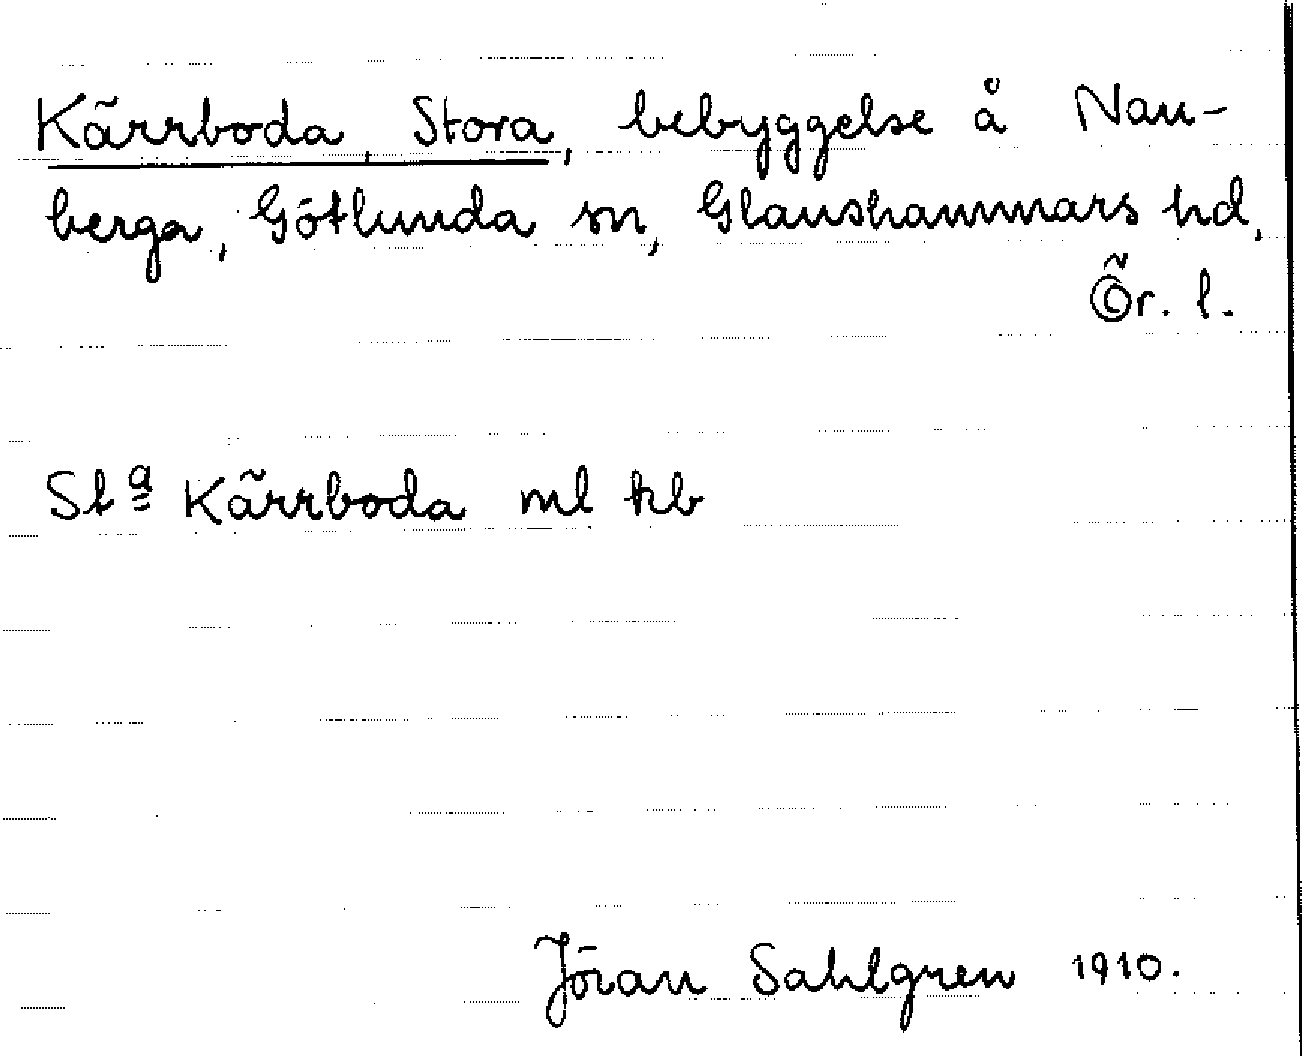 Kärrboda, Stora, bebyggelse å Nan-
berga, Götlunda sn, Glanshammars hd,
Ör. l.
St<sup>a</sup> Kärrboda ml kb
Jöran Sahlgren 1910.